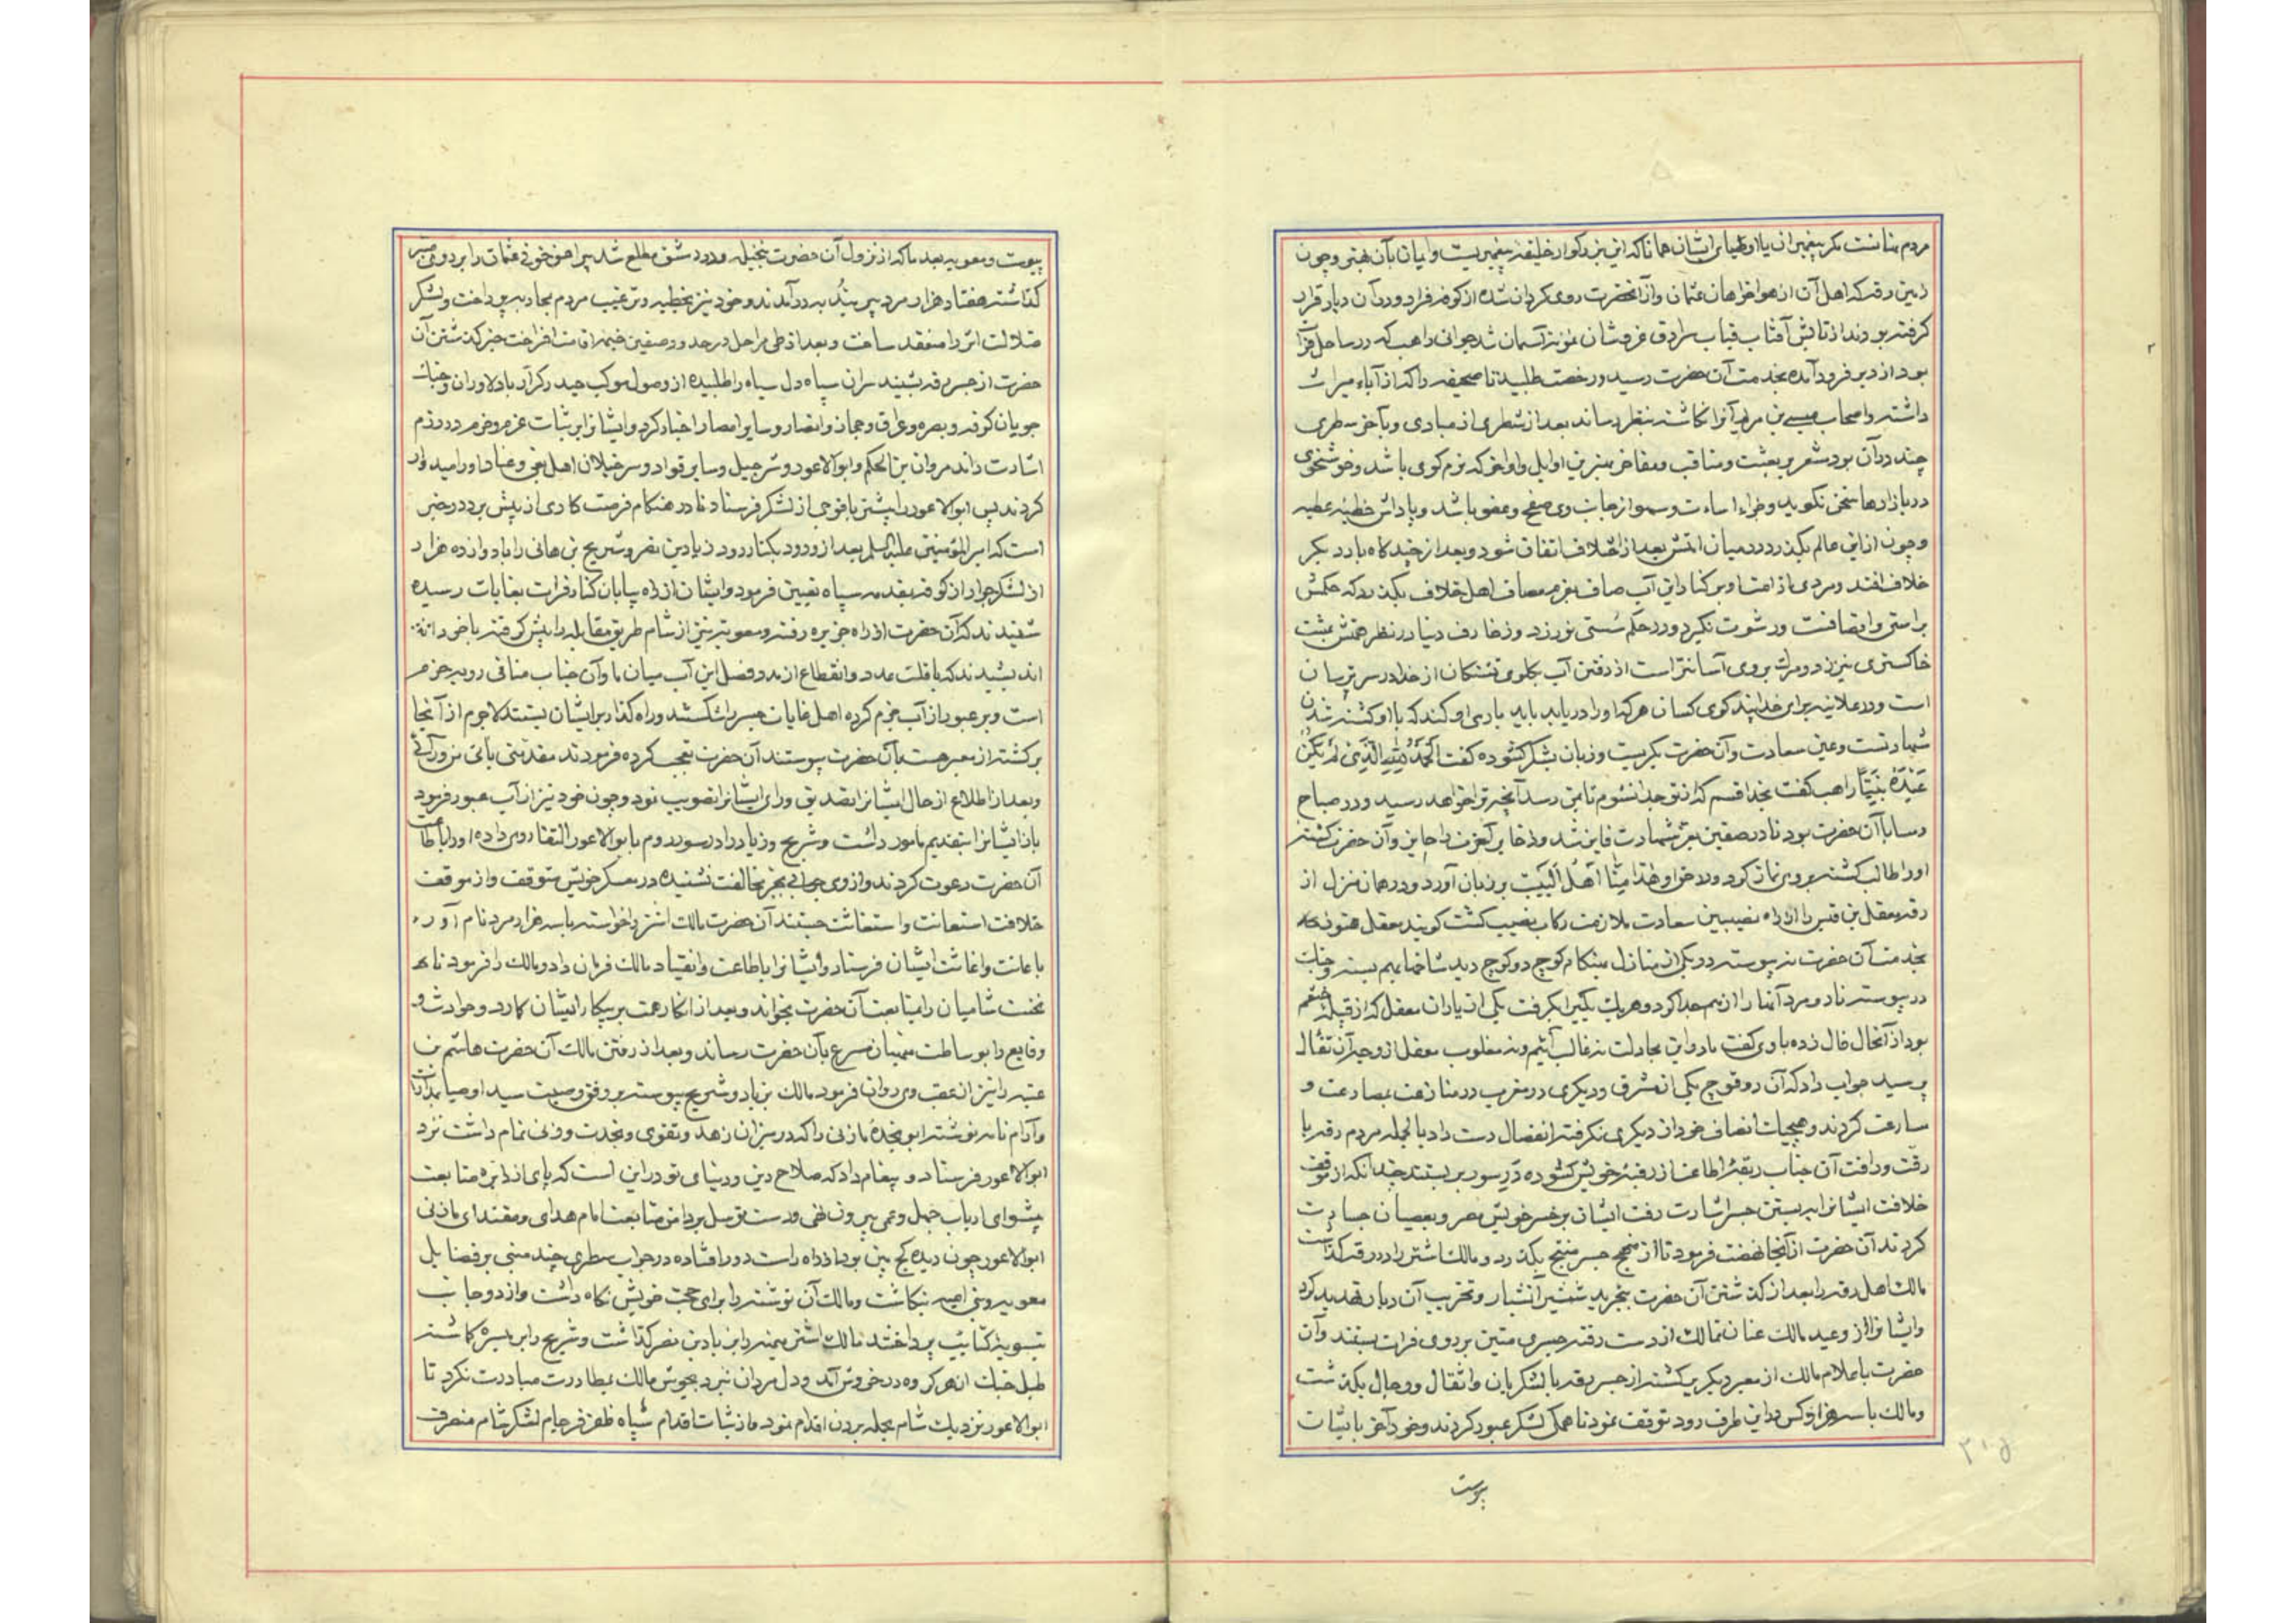 مردم بنا ننت مکر پیغمبران یا اوصیا ایشان همانا که این بزرکوار خلیفه پیغمبریست و ایمان بآن نبی و چون
زمین رقه که اهل آن از هواخواهان عثمان و از آنحضرت روی کردان شده از کوفه فرار و در آن دیار قرار
کرفته بودند از تابش آفتاب قباب سرادق عز و شان نمونه آسمان شد جوانی راهب که در ساحل فرات
بود از دیر فرود آمده بخدمت آن حضرت رسید و رخصت طلبید تا صحیفه را که از آباء میراث
داشته و اصحاب عیسی بن مریم آنرا نکاشته بنظر رساند بعد از شطری از مبادی و بآخر سطری
چند در آن بود مشعر بر بعثت و مناقب و مفاخر بهترین اوایل و اواخر که نرم کوی باشد و خوشخوی
در بازارها سخن نکوید و جزاء اساءت و سهو از جانب وی صفح و عفو باشد و پاداش خطیئه عطیه
و چون از این عالم بکذرد در میان امتش بعد از اختلاف اتفاق شود و بعد از چند کاه بار دیکر
خلاف افتد و مردی از امتش بر کنار این آب صاف بعزم مصاف اهل خلاف بکذرد که حکمش
براستی و انصافست و رشوت نکیرد و در حکم سستی نورزد و زخارف دنیا در نظر همتش بمشت
خاکستری نیرزد و مرک بر وی آسانتر است از رفتن آب بکلوی تشنکان از خدا در سر ترسان
است و در علانیه برای خدا پند کوی کسان هر که او را دریابد باید یاری او کند که با او کشته شدن
شهادتست و عین سعادت و آن حضرت بکریست و زبان بشکر کشوده کفت الحمد لله الذی لم یکن
عنده نسیا راهب کفت بخدا قسم که از تو جدا نشوم تا بمن رسد آنچه بتو خواهد رسید و در صباح
و مسا با آن حضرت بود تا در صفین بعز شهادت فایز شد و ذخایر آخرت را حایز و آن حضرت کشته
او را طالب کشته بر وی نماز کرد و لا خوا و هذا منا اهل البیت بر زبان آورد و در همان منزل از
رقه معقل بن قیس را از راه نصیبین سعادت ملازمت رکاب نصیب کشت کویند معقل هنوز
بخدمت آن حضرت نه پیوسته در یکی از منازل بهنکام کوچ دو کوچ دید شاخها بهم بسته و جنک
در پیوسته تا دو مرد آنها را از هم جدا کرد و هر یک یکی را بکرفت یکی از یاران معقل که از قبیله خثعم
بود از آنحال فال زده با وی کفت ما در این مجادلت نه غالب آئیم و نه مغلوب معقل از وجه آن تفأل
پرسید جواب داد که آن دو قوچ یکی از مشرق و دیکری در مغرب در منازعت بمصارعت و
مسارعت کردند و هیچیک انصاف خود از دیکری نکرفته انفصال دست داد بالجمله مردم رقه با
رقت و رافت آن جناب ربقه اطاعت از رقبه خویش کشوده در سور بر بستند چندانکه از موقف
خلافت ایشانرا به بستن جسر اشارت رفت ایشان بر خسر خویش مصر و بعصیان جسارت
کردند آن حضرت از آنجا نهضت فرمود تا از منبج جسر منبج بکذرد و مالک اشتر را در رقه کذاشت
مالک اهل رقه را بعد از کذشتن آن حضرت بتجرید شمشیر آتشبار و تخریب آن دیار تهدید کرد
و ایشانرا از وعید مالک عنان تمالک از دست رفته جسری متین بر روی فرات بستند و آن
حضرت با علام مالک از معبر دیکر برکشته از جسر رقه با لشکریان و اثقال و رحال بکذشت
و مالک با سه هزار کس در این طرف رود توقف نمود تا همکی لشکر عبور کردند و خود آخر با ثبات
پیوست
پیوست و معویه بعد ما که از نزول آن حضرت بنخیله و در دمشق مطلع شد پیراهن خونی عثمان را بر روی منبر
کذاشته هفتاد هزار مرد پیر بندبه درآمدند و خود نیز بخطبه و ترغیب مردم بمحاربه پرداخت و لشکر
ضلالت اثر را منعقد ساخت و بعد از طی مراحل در حدود صفین خیمه اقامت افراخت خبر کذشتن آن
حضرت از جسر رقه بشنید سران سپاه دل سیاه را طلبیده از وصول موکب حیدر کرار با دلاوران و جنک
جویان کوفه و بصره و عراق و حجاز و انصار و سایر امصار اخبار کرد و ایشانرا بر ثبات عزم و حزم در رزم
اشارت داند مروان بن الحکم و ابو الاعور و شرجیل و سایر قواد و سرخیلان اهل بغی و عناد او را امیدوار
کردند پس ابو الاعور را پیشتر با فوجی از لشکر فرستاد تا در هنکام فرصت کاری از پیش برد در خبر
است که امیر المؤمنین علیه السلم بعد از ورود بکنار رود زیاد بن نضر و شریح بن هانی را با دوازده هزار
از لشکر جرار از کوفه بمقدمه سپاه تعیین فرمود و ایشان از راه بیابان کنار فرات بعانات رسیده
شنیدند که آن حضرت از راه جزیره رفته و معویه نیز از شام طریق مقابله را پیش کرفته با خود
اندیشیدند که با قلت عدد و انقطاع از مدد و فصل این آب میان ما و آن جناب منافی رویه حزم
است و بر عبور از آب عزم کرده اهل عانات جسر را شکستند و راه کذار بر ایشان بستند لاجرم از آنجا
برکشته از معبر هیت بآن حضرت پیوستند آن حضرت تعجب کرده فرمودند مقدمتی یأتی من ورائی
و بعد از اطلاع از حال ایشانرا تصدیق و رای ایشانرا تصویب نمود و چون خود نیز از آب عبور فرمود
باز ایشانرا بتقدیم مامور داشت و شریح و زیاد را در سور روم با ابو الاعور التقا روی داده او را باطاعت
آن حضرت دعوت کردند و از وی جوابی بجز مخالفت نشنیده در معسکر خویش متوقف و از موقف
خلافت استعانت و استغاثت جستند آن حضرت مالک اشتر را خواسته با سه هزار مرد نام آور
باعانت و اغاثت ایشان فرستاد و ایشانرا باطاعت و انقیاد مالک فرمان داد و مالک را فرمود تا
نخست شامیان را بمتابعت آن حضرت بخواند و بعد از انکار همت بر پیکار ایشان کمارد و حوادث و
وقایع را بوساطت منهیان مسرع بآن حضرت رساند و بعد از رفتن مالک آن حضرت هاشم بن
عتبه را نیز از عقب وی روان فرمود مالک بزیاد و شریح پیوسته بر وفق وصیت سید اوصیا بمدارا
و آرام نامه نوشته ابو نجده مازنی را که در میزان زهد و تقوی و نجدت وزنی تمام داشت نزد
ابو الاعور فرستاد و پیغام داد که صلاح دین و دنیای تو در این است که پای از دایره متابعت
پیشوای ارباب جهل و عمی بیرون نهی و دست توسل بر دامن متابعت امام هدای و مقتدای مازنی
ابو الاعور چون دیده کج بین بود از راه راست دور افتاده در جواب سطری چند مبنی بر فضایل
معویه و بنی امیه بنکاشت و مالک آن نوشته را برای حجت خویش نکاه داشت و از دو جانب
بتسویه کتایب پرداختند مالک اشتر میمنه را بزیاد بن نضر کذاشت و شریح را بر میسره کماشته
طبل جنک از هر کروه در خروش آمد و دل مردان نبرد بجوش مالک بمطاردت مبادرت نکرد تا
ابو الاعور نزدیک شام بحمله بردن اقدام نمود و از ثبات اقدام سپاه ظفر فرجام لشکر شام منصرف